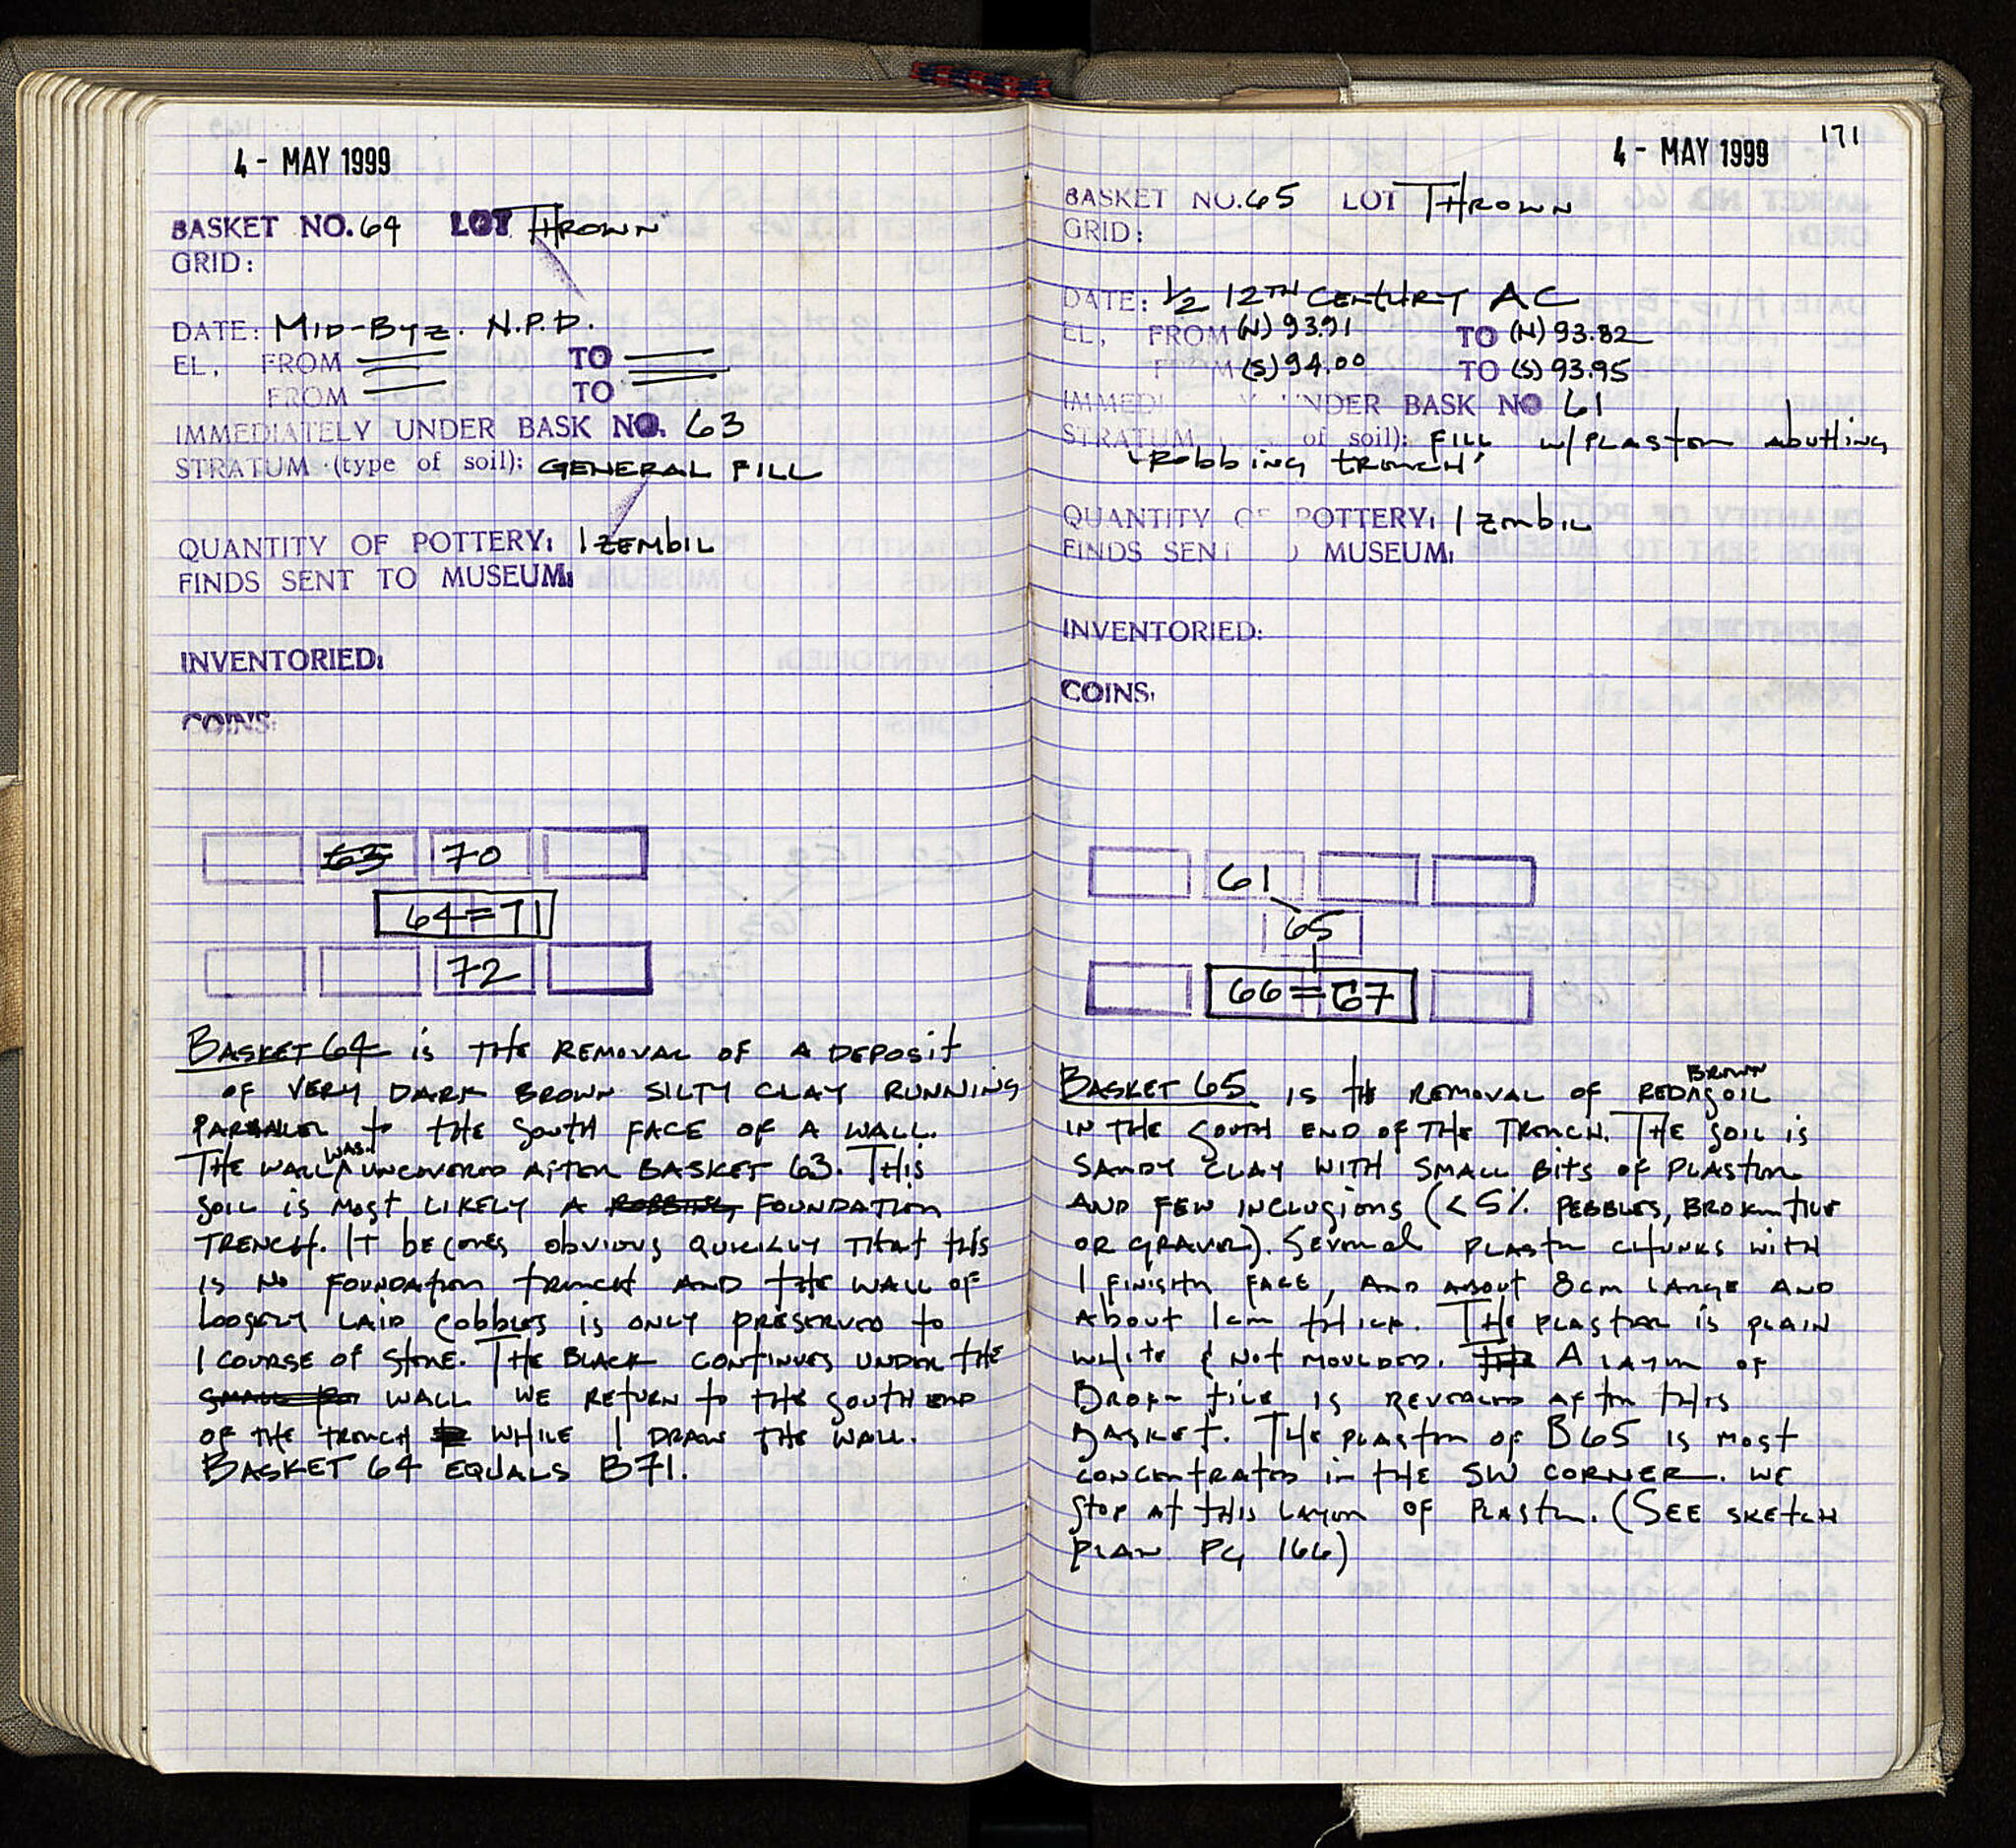 4 - MAY 1999
BASKET NO. 64 LOT THROWN
GRID:
DATE: MID-BYZ. N.P.D.
EL. FROM TO
FROM TO
IMMEDIATELY UNDER BASK NO. 63
STRATUM (type of soil): GENERAL FILL
QUANTITY OF POTTERY: 1 ZEMBIL
FINDS SENT TO MUSEUM:
INVENTORIED:
COINS:
63 70
64=71
72
BASKET 64 IS THE REMOVAL OF A DEPOSIT
OF VERY DARK BROWN SILTY CLAY RUNNING
PARALLEL TO THE SOUTH FACE OF A WALL.
THE WALL WAS UNCOVERED AFTER BASKET 63. THIS
SOIL IS MOST LIKELY A ROBBING FOUNDATION
TRENCH. IT BECOMES OBVIOUS QUICKLY THAT THIS
IS NO FOUNDATION TRENCH AND THE WALL OF
LOOSELY LAID COBBLES IS ONLY PRESERVED TO
1 COURSE OF STONE. THE BLACK CONTINUES UNDER THE
SMALL WALL WE RETURN TO THE SOUTH END
OF THE TRENCH WHILE I DRAW THE WALL.
BASKET 64 EQUALS B71.
171
4 - MAY 1999
BASKET NO. 65 LOT THROWN
GRID:
DATE: 1/2 12TH CENTURY AC
EL, FROM (N) 93.91 TO (N) 93.82
FROM (S) 94.00 TO (S) 93.95
IMMEDI Y UNDER BASK NO 61
STRATUM of soil): FILL w/PLASTER abutting
'Robbing trench'
QUANTITY OF POTTERY: 1 zembil
FINDS SENT TO MUSEUM:
INVENTORIED:
COINS:
61
65
66=67
BASKET 65 IS THE REMOVAL OF RED BROWN SOIL
IN THE SOUTH END OF THE TRENCH. THE SOIL IS
SANDY CLAY WITH SMALL BITS OF PLASTER
AND FEW INCLUSIONS (<5% PEBBLES, BROKEN TILE
OR GRAVEL). SEVERAL PLASTER CHUNKS WITH
1 FINISHED FACE, AND ABOUT 8cm LARGE AND
ABOUT 1cm THICK. THE PLASTER IS PLAIN
WHITE & NOT MOULDED. THE A LAYER OF
BROKEN TILE IS REVEALED AFTER THIS
BASKET. THE PLASTER OF B65 IS MOST
CONCENTRATED IN THE SW CORNER. WE
STOP AT THIS LAYER OF PLASTER. (SEE SKETCH
PLAN PG 166)